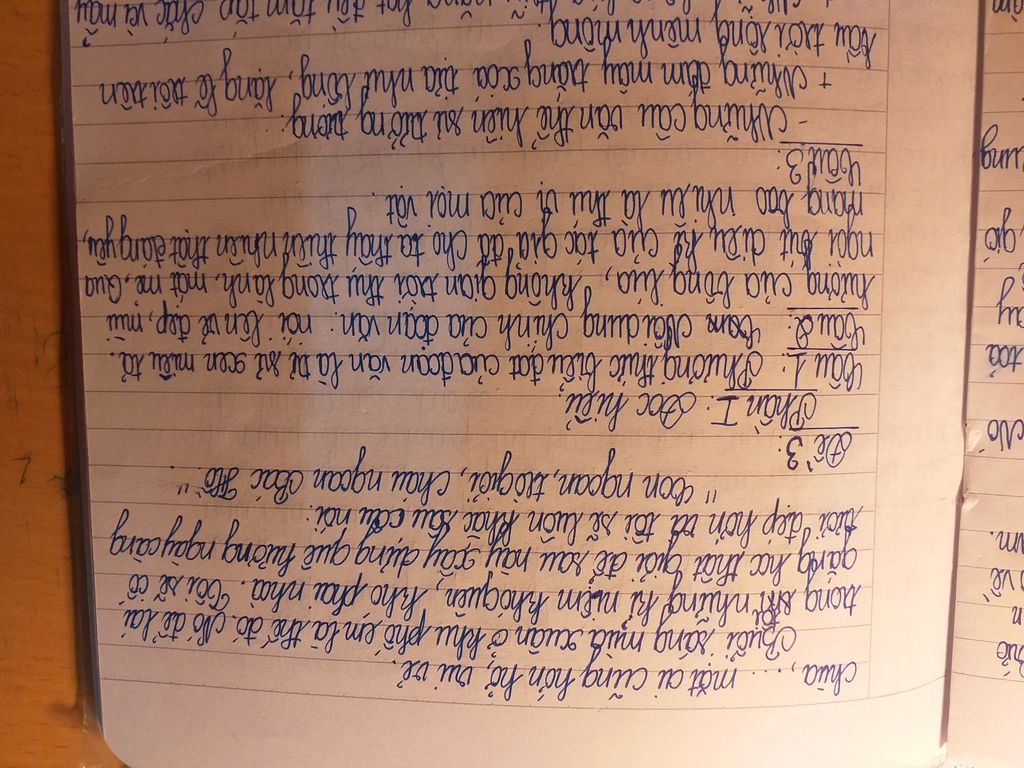 chùa, ... mặt ai cũng hớn hở, vui vẻ.
Buổi sáng mùa xuân ở khu phố em là thế đó. Nó để lại
trong những kỉ niệm khó quên, khó phai nhòa. Tôi sẽ cố
gắng học thật giỏi để sau này xây dựng quê hương ngày càng
tươi đẹp hơn và tôi sẽ luôn khắc sâu câu nói:
"Con ngoan, trò giỏi, cháu ngoan Bác Hồ".
Đề 3:
Phần I: Đọc hiểu.
Câu 1: Phương thức biểu đạt của đoạn văn là tự sự xen miêu tả.
Câu 2: Nội dung chính của đoạn văn: nói lên vẻ đẹp, mùi
hương của bông lúa, không gian trời thu trong lành, mát mẻ. Qua
ngòi bút diệu kì của tác giả đã cho ta thấy thiên nhiên thật đáng yêu,
mang bao nhiêu là thú vị của mọi vật.
Câu 3:
- Những câu văn thể hiện sự tưởng tượng:
+ Những đám mây trắng xóa tựa như bông, lặng lẽ trôi trên
bầu trời rộng mênh mông.
hạt đều tăm tắp, chắc và mẩy
Nó